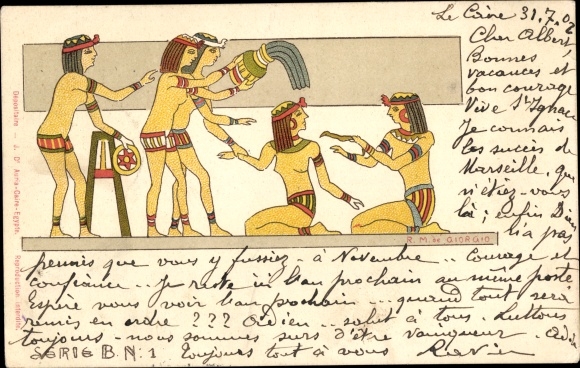 Le Caire 31.7.02
Cher Albert
Bonnes
vacances et
bon courage
Vive St Ignace
Je connais
les succès de
Marseille, que
n'étiez-vous
là; enfin Dieu
n'a pas
permis que vous y fussiez - à Novembre... Courage et
confiance... Je reste ici l'an prochain au même poste
Espère vous voir l'an prochain... quand tout sera
remis en ordre ??? Adieu... salut à tous. Luttons
toujours - nous sommes surs d'être vainqueur.
Toujours tout à vous
R. M. de GIORGIO.
SERIE B. N. 1
Dépositaire J. Dr Auria-Caire-Egypte. Reproduction interdite.